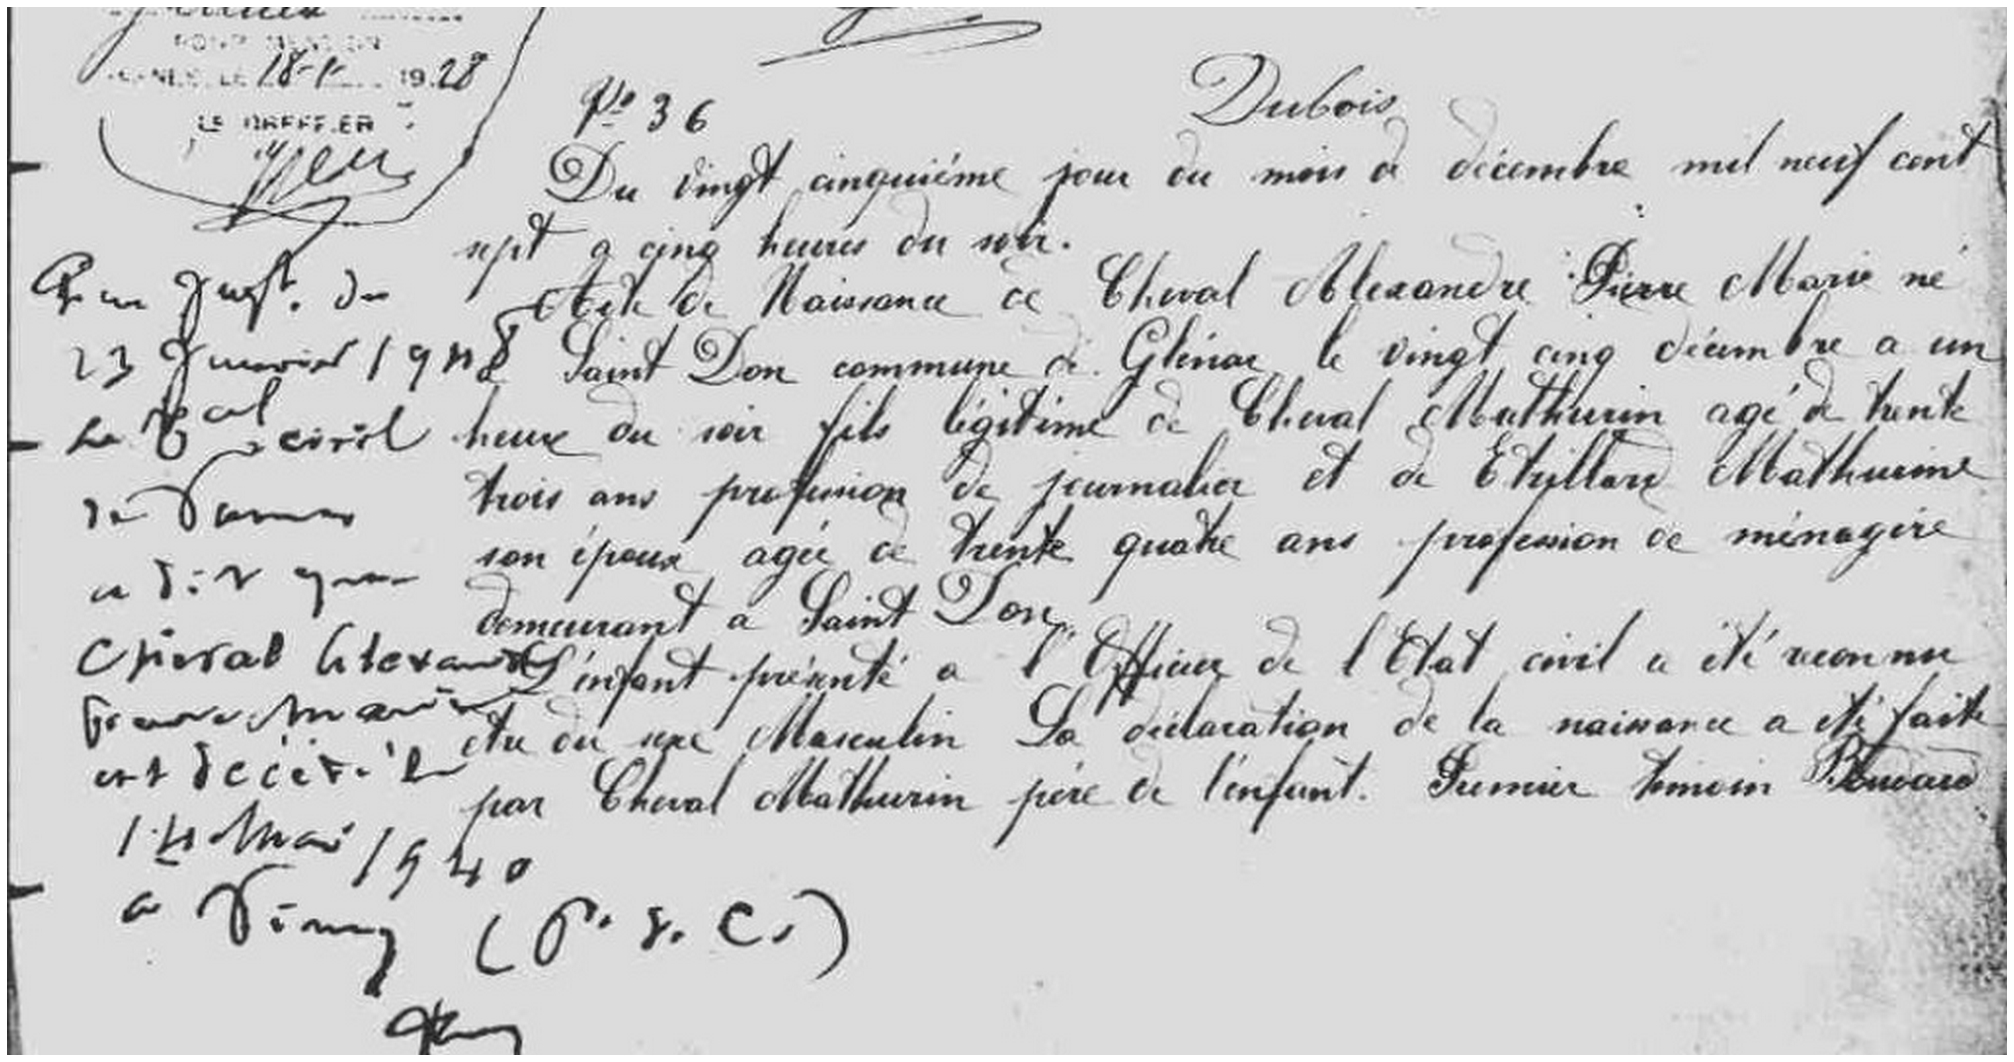 POUR MENTION
LE 18-1- 1928
LE GREFFIER
No 36
Dubois
Du vingt cinquième jour du mois de décembre mil neuf cent
sept a cinq heures du soir.
Acte de Naissance de Cheval Alexandre Pierre Marie né
a Saint Don commune de Glénac le vingt cinq décembre a un
heure du soir fils légitime de Cheval Mathurin agé de trente
trois ans profession de journalier et de Etrillard Mathurine
son épouse agée de trente quatre ans profession de ménagère
demeurant a Saint Don
L'enfant présenté a l'Officier de l'Etat civil a été reconnu
etre du sexe Masculin La déclaration de la naissance a été faite
par Cheval Mathurin père de l'enfant. Premier témoin
Par Jugt. du
23 Janvier 1948
le Tbal civil
de Vannes
a dit que
Cheval Alexandre
Pierre Marie
est décédé le
14 Mai 1940
a Vimy (P. d. C.)